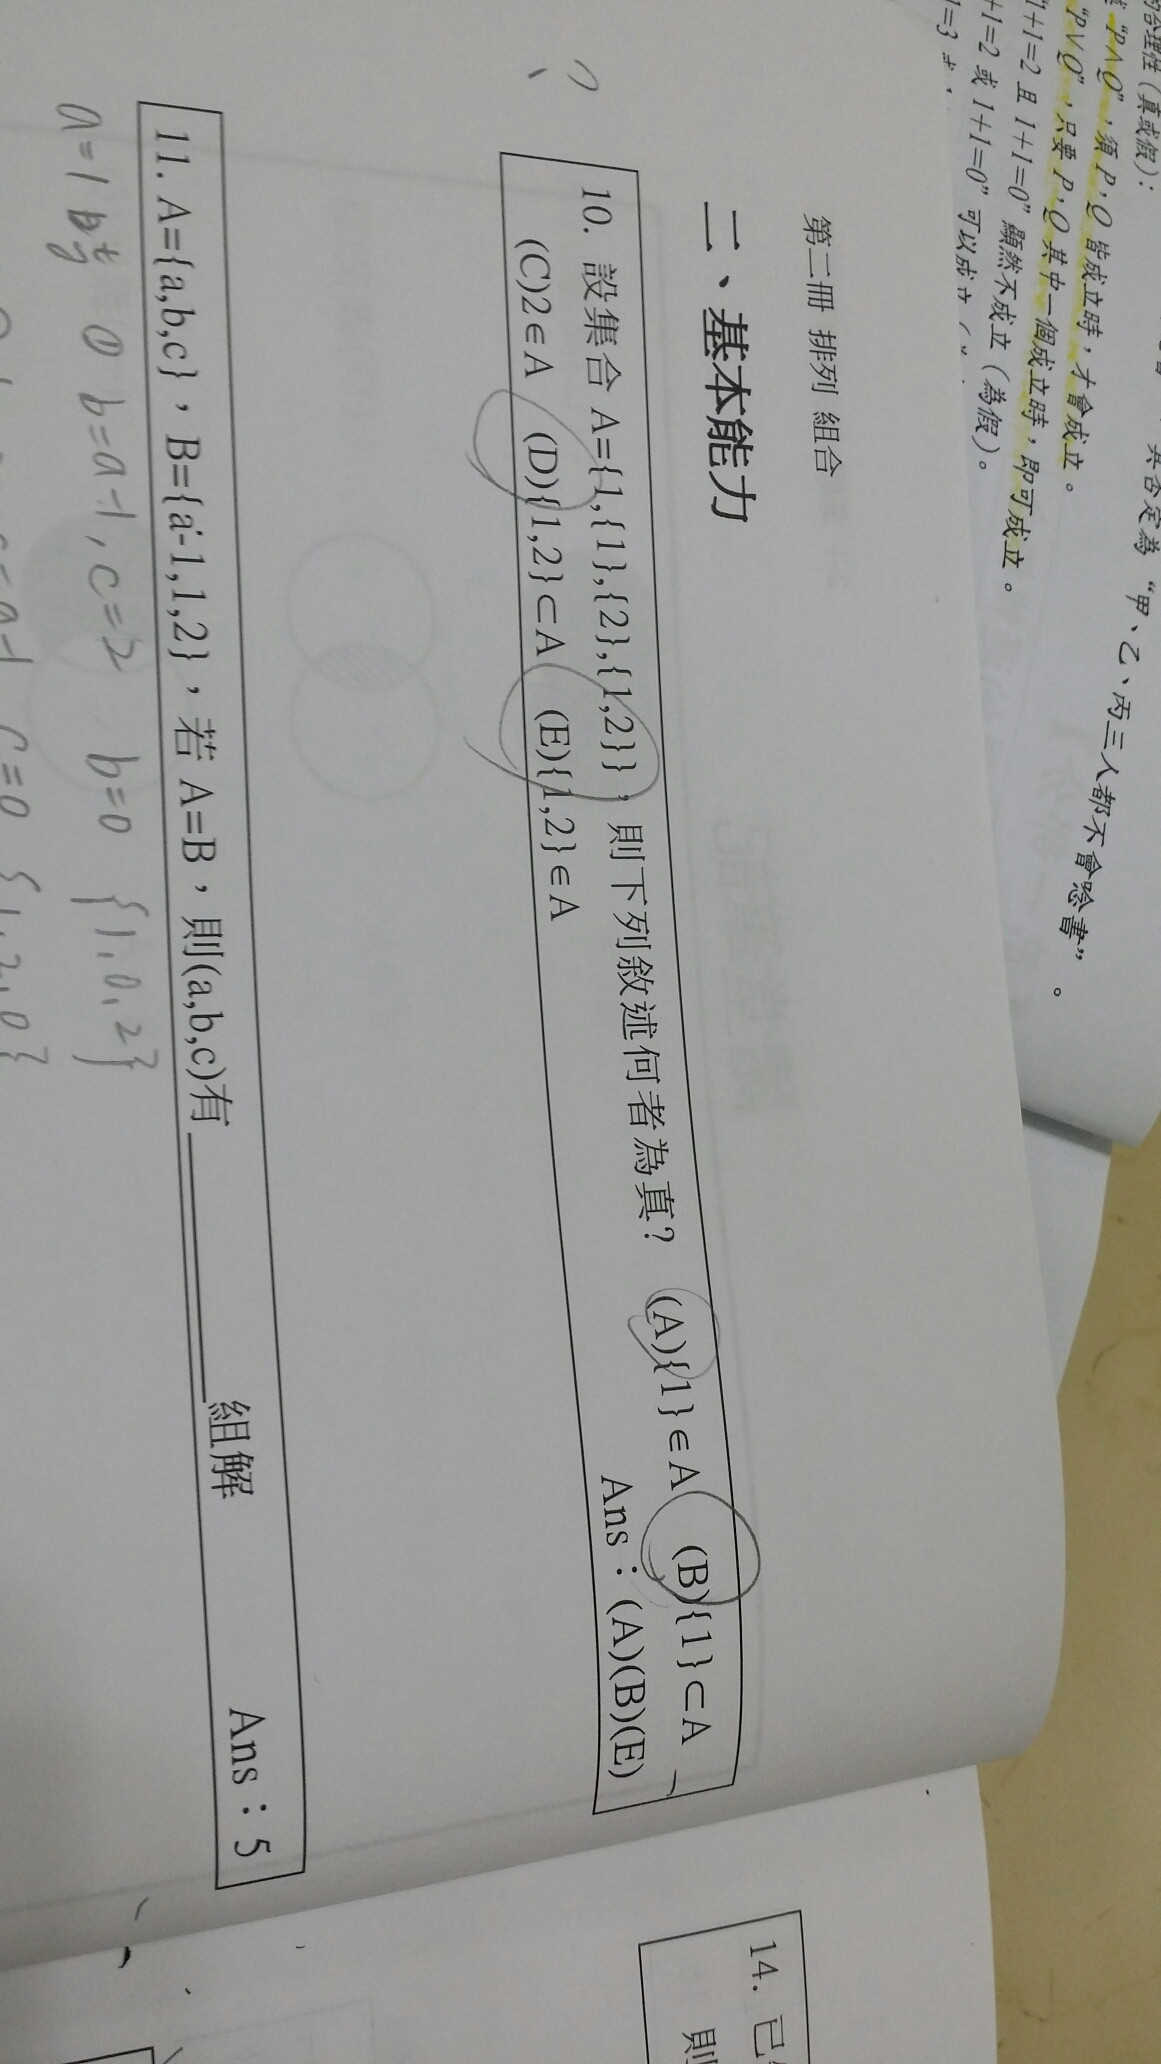 的合理性（真或假）：
“P∧Q”，須 P，Q 皆成立時，才會成立。
“P∨Q”，只要 P，Q 其中一個成立時，即可成立。
1+1=2 且 1+1=0” 顯然不成立（為假）。
+1=2 或 1+1=0” 可以成立（
1=3
其否定為 “甲、乙、丙三人都不會唸書”。
第二冊 排列 組合
二、基本能力
10. 設集合 A={1,{1},{2},{1,2}}，則下列敘述何者為真？ (A){1}∈A (B){1}⊂A
(C)2∈A (D){1,2}⊂A (E){1,2}∈A Ans：(A)(B)(E)
11. A={a,b,c}，B={a-1,1,2}，若 A=B，則(a,b,c)有 組解 Ans：5
a=1 0 b=a-1, c=2 b=0 {1,0,2}
c=a-1 c=0 {1,2,0}
14. 已
則